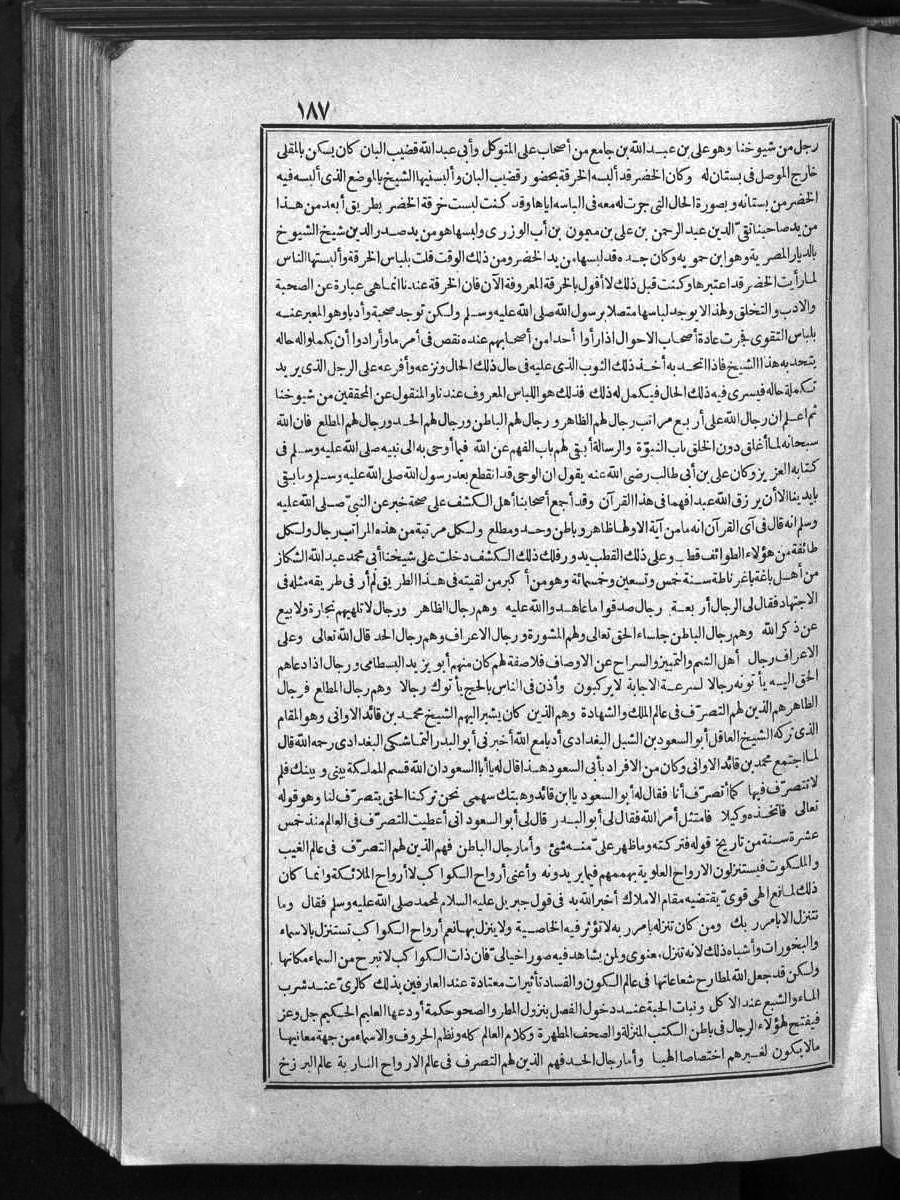 ١٨٧
رجل من شيوخنا وهو علي بن عبد الله بن جامع من أصحاب علي المتوكل وأبي عبد الله قضيب البان كان يسكن بالمقلى
خارج الموصل في بستان له وكان الخضر قد ألبسه الخرقة بحضور قضيب البان وألبسنيها الشيخ بالموضع الذي ألبسه فيه
الخضر من بستانه وبصورة الحال التي جرت له معه في الباسه اياها وقد كنت لبست خرقة الخضر بطريق أبعد من هذا
من يد صاحبنا تقيّ الدين عبد الرحمن بن علي بن ميمون بن أب الوزري ولبسها هو من يد صدر الدين شيخ الشيوخ
بالديار المصرية وهو ابن حمويه وكان جده قد لبسها من يد الخضر ومن ذلك الوقت قلت بلباس الخرقة وألبستها الناس
لما رأيت الخضر قد اعتبرها وكنت قبل ذلك لا أقول بالخرقة المعروفة الآن فان الخرقة عندنا انما هي عبارة عن الصحبة
والادب والتخلق ولهذا لا يوجد لباسها متصلا برسول الله صلى الله عليه وسلم ولكن توجد صحبة وأدبا وهو المعبر عنه
بلباس التقوى فجرت عادة أصحاب الاحوال اذا رأوا أحدا من أصحابهم عنده نقص في أمر ما وأرادوا أن يكملوا له حاله
يتحد به هذا الشيخ فاذا اتحد به أخذ ذلك الثوب الذي عليه في حال ذلك الحال ونزعه وأفرغه على الرجل الذي يريد
تكملة حاله فيسرى فيه ذلك الحال فيكمل له ذلك فذلك هو اللباس المعروف عندنا والمنقول عن المحققين من شيوخنا
ثم اعلم ان رجال الله على أربع مراتب رجال لهم الظاهر ورجال لهم الباطن ورجال لهم الحد ورجال لهم المطلع فان الله
سبحانه لما أغلق دون الخلق باب النبوّة والرسالة أبقى لهم باب الفهم عن الله فيما أوحى به الى نبيه صلى الله عليه وسلم في
كتابه العزيز وكان علي بن أبي طالب رضي الله عنه يقول ان الوحي قد انقطع بعد رسول الله صلى الله عليه وسلم وما بقي
بايدينا الا أن يرزق الله عبدا فهما في هذا القرآن وقد أجمع أصحابنا أهل الكشف على صحة خبر عن النبيّ صلى الله عليه
وسلم انه قال في آي القرآن انه ما من آية الا ولها ظاهر وباطن وحد ومطلع ولكل مرتبة من هذه المراتب رجال ولكل
طائفة من هؤلاء الطوائف قطب وعلى ذلك القطب يدور فلك ذلك الكشف دخلت على شيخنا أبي محمد عبد الله الشكاز
من أهل باغة باغرناطة سنة خمس وتسعين وخمسمائة وهو من أكبر من لقيته في هذا الطريق لم أر في طريقه مثله في
الاجتهاد فقال لي الرجال أربعة رجال صدقوا ما عاهدوا الله عليه وهم رجال الظاهر ورجال لا تلهيهم تجارة ولا بيع
عن ذكر الله وهم رجال الباطن جلساء الحق تعالى ولهم المشورة ورجال الاعراف وهم رجال الحد قال الله تعالى وعلى
الاعراف رجال أهل الشم والتمييز والسراح عن الاوصاف فلا صفة لهم كان منهم أبو يزيد البسطامي ورجال اذا دعاهم
الحق اليه يأتونه رجالا لسرعة الاجابة لا يركبون وأذن في الناس بالحج يأتوك رجالا وهم رجال المطلع فرجال
الظاهر هم الذين لهم التصرّف في عالم الملك والشهادة وهم الذين كان يشير اليهم الشيخ محمد بن قائد الاواني وهو المقام
الذي تركه الشيخ العاقل أبو السعود بن الشبل البغدادي أدبا مع الله أخبرني أبو البدر التماشكي البغدادي رحمه الله قال
لما اجتمع محمد بن قائد الاواني وكان من الافراد بأبي السعود هذا قال له يا أبا السعود ان الله قسم المملكة بيني وبينك فلم
لا تتصرّف فيها كما أتصرّف أنا فقال له أبو السعود يا ابن قائد وهبتك سهمي نحن تركنا الحق يتصرّف لنا وهو قوله
تعالى فاتخذه وكيلا فامتثل أمر الله فقال لي أبو البدر قال لي أبو السعود اني أعطيت التصرّف في العالم منذ خمس
عشرة سنة من تاريخ قوله فتركته وما ظهر عليّ منه شئ وأما رجال الباطن فهم الذين لهم التصرّف في عالم الغيب
والملكوت فيستنزلون الارواح العلوية بهممهم فيما يريدونه وأعني أرواح الكواكب لا أرواح الملائكة وانما كان
ذلك لمانع الهي قويّ يقتضيه مقام الاملاك أخبر الله به في قول جبريل عليه السلام لمحمد صلى الله عليه وسلم فقال وما
نتنزل الا بامر ربك ومن كان تنزله بامر ربه لا تؤثر فيه الخاصية ولا ينزل بها نعم أرواح الكواكب تستنزل بالاسماء
والبخورات وأشباه ذلك لانه تنزل معنوي ولمن يشاهد فيه صورا خياليّ فان ذات الكواكب لا تبرح من السماء مكانها
ولكن قد جعل الله لمطارح شعاعاتها في عالم الكون والفساد تأثيرات معتادة عند العارفين بذلك كالريّ عند شرب
الماء والشبع عند الاكل ونبات الحبة عند دخول الفصل بنزول المطر والصحو حكمة أودعها العليم الحكيم جل وعز
فيفتح لهؤلاء الرجال في باطن الكتب المنزلة والصحف المطهرة وكلام العالم كله ونظم الحروف والاسماء من جهة معانيها
ما لا يكون لغيرهم اختصاصا الهيا وأما رجال الحد فهم الذين لهم التصرف في عالم الارواح النارية عالم البرزخ